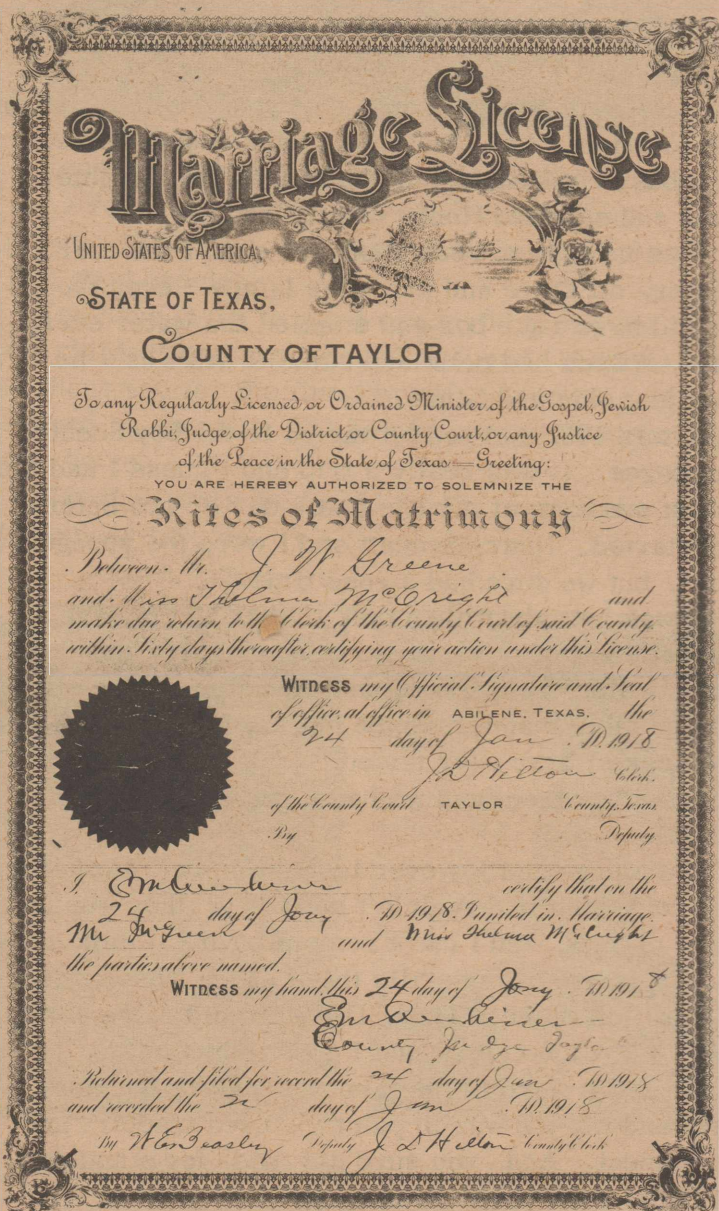 Marriage License
UNITED STATES OF AMERICA,
STATE OF TEXAS,
COUNTY OF TAYLOR
To any Regularly Licensed or Ordained Minister of the Gospel, Jewish
Rabbi, Judge of the District or County Court, or any Justice
of the Peace in the State of Texas — Greeting:
YOU ARE HEREBY AUTHORIZED TO SOLEMNIZE THE
Rites of Matrimony
Between Mr. J. W. Greene
and Miss Thelma McCright and
make due return to the Clerk of the County Court of said County
within Sixty days thereafter, certifying your action under this License.
WITNESS my Official Signature and Seal
of office, at office in ABILENE, TEXAS, the
24 day of Jan A.D. 1918
J D Hilton Clerk,
of the County Court TAYLOR County, Texas.
By Deputy
I certify that on the
24 day of Jany A.D. 1918. I united in Marriage
Mr and Miss Thelma McCright
the parties above named.
WITNESS my hand, this 24 day of Jany A.D. 1918
County Judge
Returned and filed for record the 24 day of Jan A.D. 1918
and recorded the day of Jan A.D. 1918
By W E Beasley Deputy J D Hilton County Clerk